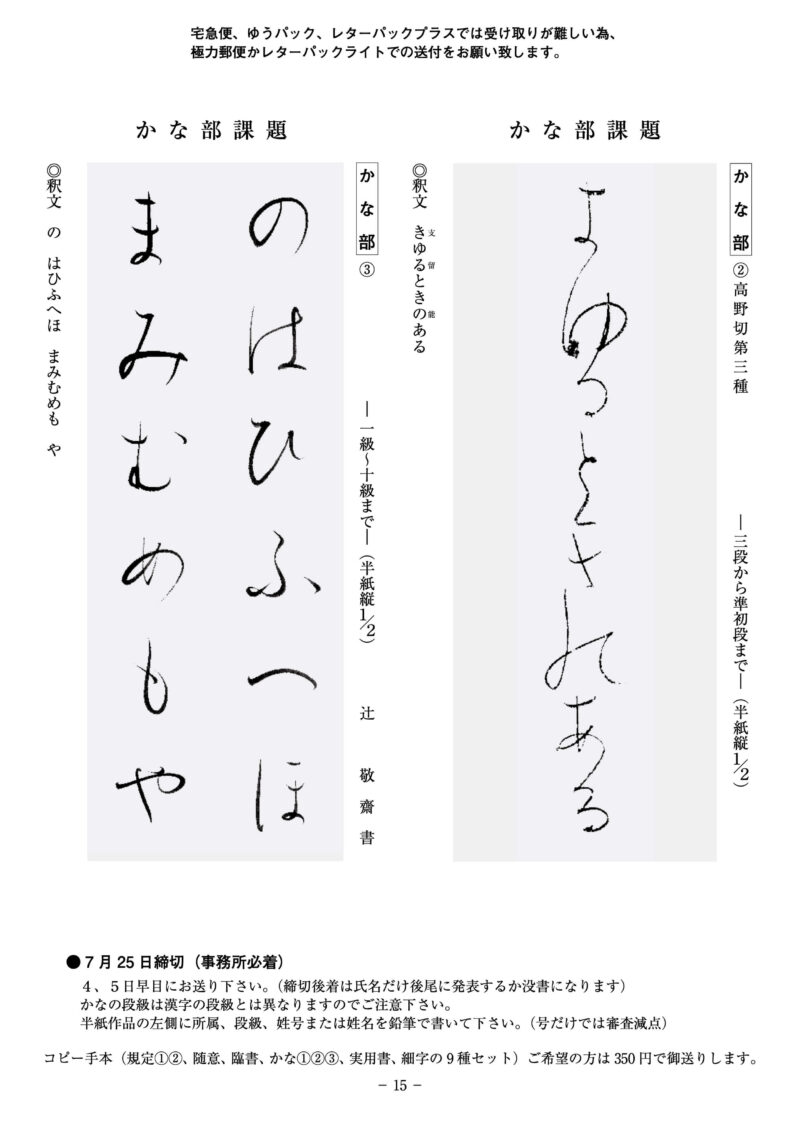 宅急便、ゆうパック、レターパックプラスでは受け取りが難しい為、
極力郵便かレターパックライトでの送付をお願い致します。
かな部課題
かな部 ② 高野切第三種 ―三段から準初段まで―(半紙縦1/2)
きゆるときのある
◎釈文 きゆるときのある
支 留 能
かな部課題
かな部 ③ ―一級~十級まで―(半紙縦1/2) 辻 敬齋書
のはひふへほ
まみむめもや
◎釈文 の はひふへほ まみむめも や
●7月25日締切(事務所必着)
4、5日早目にお送り下さい。(締切後着は氏名だけ後尾に発表するか没書になります)
かなの段級は漢字の段級とは異なりますのでご注意下さい。
半紙作品の左側に所属、段級、姓号または姓名を鉛筆で書いて下さい。(号だけでは審査減点)
コピー手本(規定①②、随意、臨書、かな①②③、実用書、細字の9種セット)ご希望の方は350円で御送りします。
− 15 −